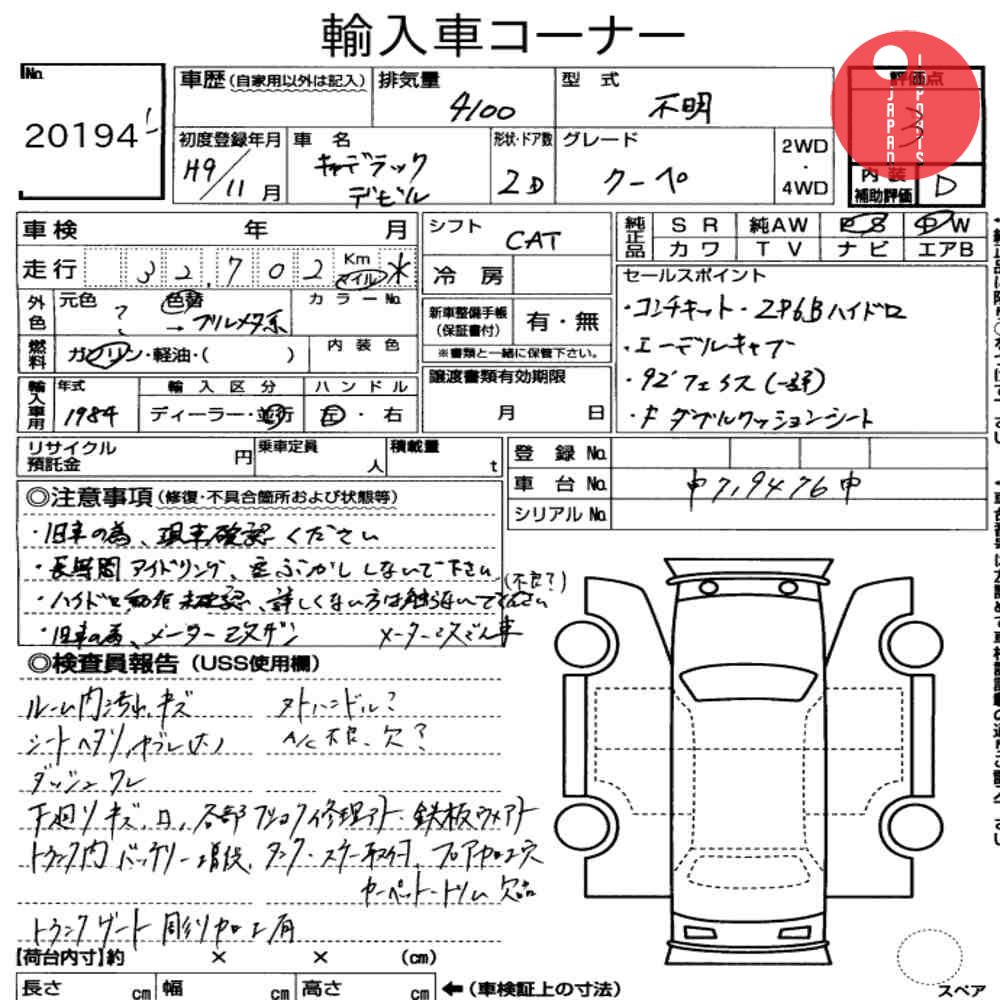 輸入車コーナー
No.
20194
車歴(自家用以外は記入)
排気量
4100
型 式
不明
評価点
3
JAPAN
IMPORTS
初度登録年月
H9/11月
車 名
キャデラック
デビル
形状・ドア数
2D
グレード
クーペ
2WD
・
4WD
内 装
補助評価
D
車検 年 月
走行 32,702 Km マイル
シフト
CAT
冷 房
純正品
SR 純AW PS PW
カワ TV ナビ エアB
外色
元色
?
色替
→ブルメタ系
カラーNo.
新車整備手帳
(保証書付)
有・無
※書類と一緒に保管下さい。
セールスポイント
・コンチキット・2P6Bハイドロ
・エーデルキャブ
・92'フェイス(一部)
・F ダブルクッションシート
燃料
ガソリン・軽油・( )
内装色
輸入車用
年式
1984
輸入区分
ディーラー・並行
ハンドル
左・右
譲渡書類有効期限
月 日
リサイクル
預託金
円
乗車定員
人
積載量
t
登 録 No.
車 台 No.
シリアル No.
◎注意事項(修復・不具合箇所および状態等)
・旧車の為、現車確認ください
・長時間アイドリング、空ぶかししないで下さい
(不良?)
・ハイドロ動作未確認、詳しくない方は触らないでください
・旧車の為、メーター改ザン
メーター改ざん車
◎検査員報告(USS使用欄)
ルーム内汚れ、キズ
シートヘタリ、ヤブレ、穴
ダッシュワレ
A/C不良、欠?
下廻りキズ、凹、各部
トランク内バッテリー増設、
フロア加工穴
カーペット・トリム欠品
トランクゲート彫り加工有
【荷台内寸】約 × × (cm)
長さ cm 幅 cm 高さ cm ←(車検証上の寸法)
スペア